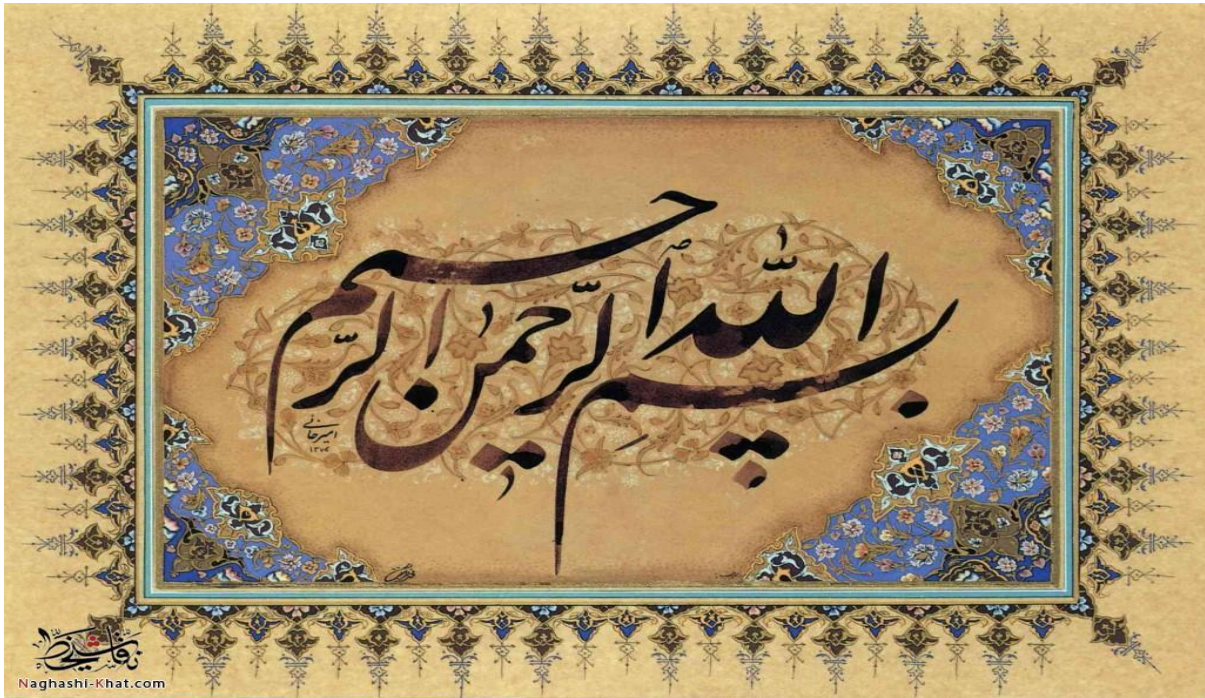 بسم الله الرحمن الرحیم
امیرخانی
۱۳۷۴
نقاشیخط
Naghashi-Khat.com